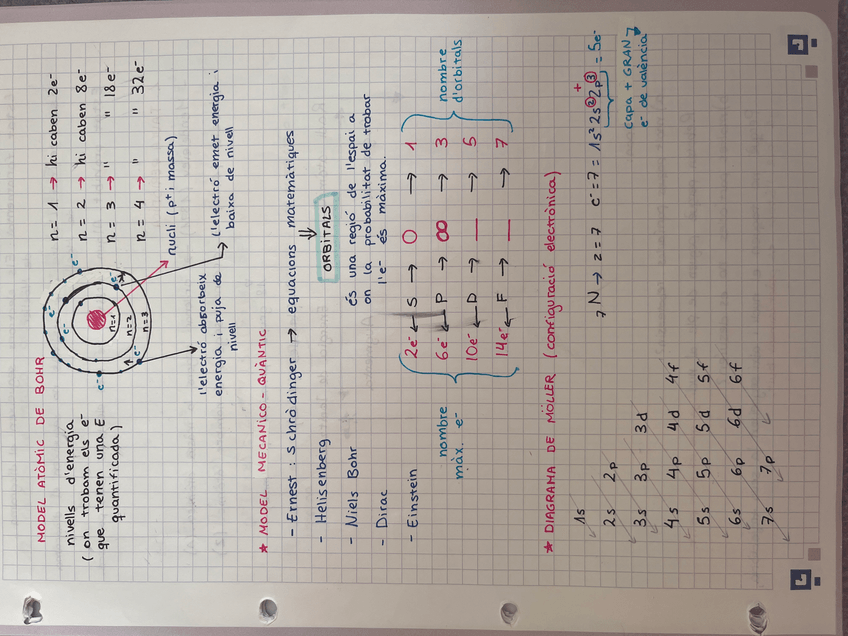 MODEL ATÒMIC DE BOHR
nivells d'energia
(on trobam els e-
que tenen una E
quantificada)
e-
e-
e-
e-
e-
e-
n=1
n=2
n=3
n=1 → hi caben 2e-
n=2 → hi caben 8e-
n=3 → " " 18e-
n=4 → " " 32e-
nucli (p+ i massa)
l'electró absorbeix
energia i puja de
nivell
l'electró emet energia i
baixa de nivell
★ MODEL MECANICO-QUÀNTIC
- Ernest: Schròdinger → equacions matemàtiques
⇓
- Helisenberg
ORBITALS
- Niels Bohr
és una regió de l'espai a
on la probabilitat de trobar
l'e- és màxima.
- Dirac
- Einstein
2e- ← S → O → 1
6e- ← P → 8 → 3
10e- ← D → — → 5
14e- ← F → — → 7
nombre
màx. e-
nombre
d'orbitals
★ DIAGRAMA DE MÖLLER (configuració electrònica)
1s
2s 2p
3s 3p 3d
4s 4p 4d 4f
5s 5p 5d 5f
6s 6p 6d 6f
7s 7p
₇N → z=7 e-=7 = 1s² 2s² 2p³ = 5e-
+
capa + GRAN →
e- de valència